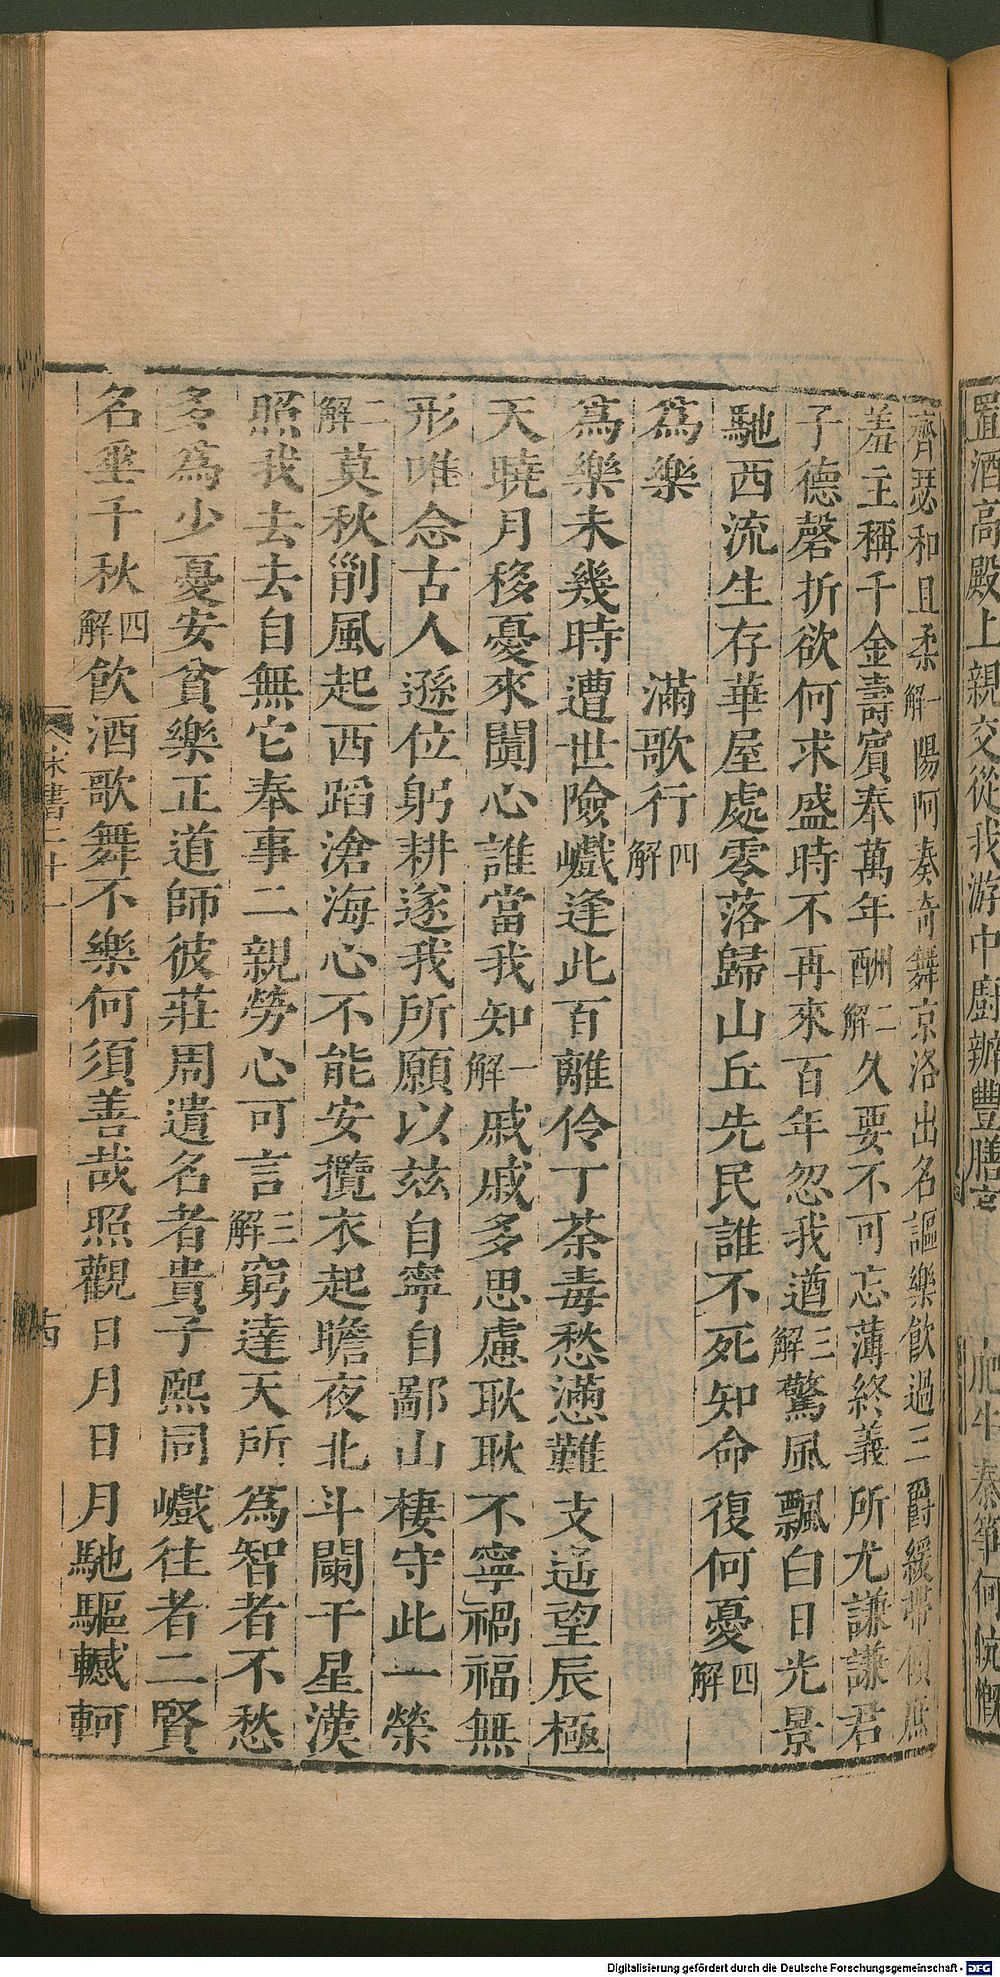 置酒高殿上親交從我游中廚辦豐膳烹羊宰肥牛秦箏何慷慨
齊瑟和且柔一解陽阿奏奇舞京洛出名謳樂飲過三爵緩帶傾庶
羞主稱千金壽賓奉萬年酬二解久要不可忘薄終義所尤謙謙君
子德磬折欲何求盛時不再來百年忽我遒三解驚風飄白日光景
馳西流生存華屋處零落歸山丘先民誰不死知命復何憂四解
爲樂 滿歌行四解
爲樂未幾時遭世險巇逢此百離伶丁荼毒愁懣難支遥望辰極
天曉月移憂來闐心誰當我知一解戚戚多思慮耿耿不寧禍福無
形唯念古人遜位躬耕遂我所願以兹自寧自鄙山棲守此一榮
二解莫秋𠛬風起西蹈滄海心不能安攬衣起瞻夜北斗闌干星漢
照我去去自無它奉事二親勞心可言三解窮達天所爲智者不愁
多爲少憂安貧樂正道師彼莊周遺名者貴子熙同巇往者二賢
名垂千秋四解飲酒歌舞不樂何須善哉照觀日月日月馳驅轗軻
宋書二十一
Digitalisierung gefördert durch die Deutsche Forschungsgemeinschaft - DFG